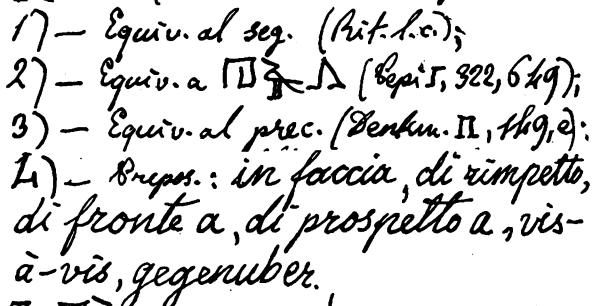 1) — Equiv. al seg. (Rit. l.c.);
2) — Equiv. a (Lepsius, 322, 649);
3) — Equiv. al prec. (Denkm. II, 149, e):
4) — Prepos.: in faccia, di rimpetto,
di fronte a, di prospetto a, vis-
à-vis, gegenuber.